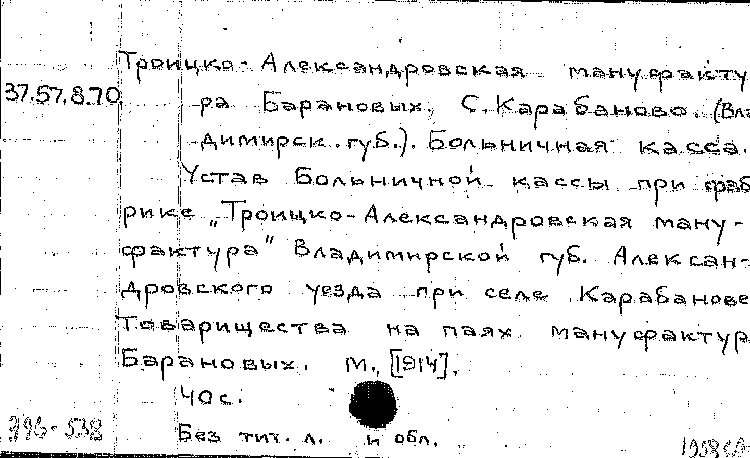 Троицко-Александровская мануфакту
37.57.8.70
ра Барановых, с. Карабаново. (Вла
димирск. губ.). Больничная касса.
Устав Больничной кассы при фаб
рике „Троицко-Александровская ману-
фактура" Владимирской губ. Алексан-
дровского уезда при селе Карабанове
Товарищества на паях мануфактур
Барановых. М., [1914].
40 с.
396-538
Без тит. л. и обл.